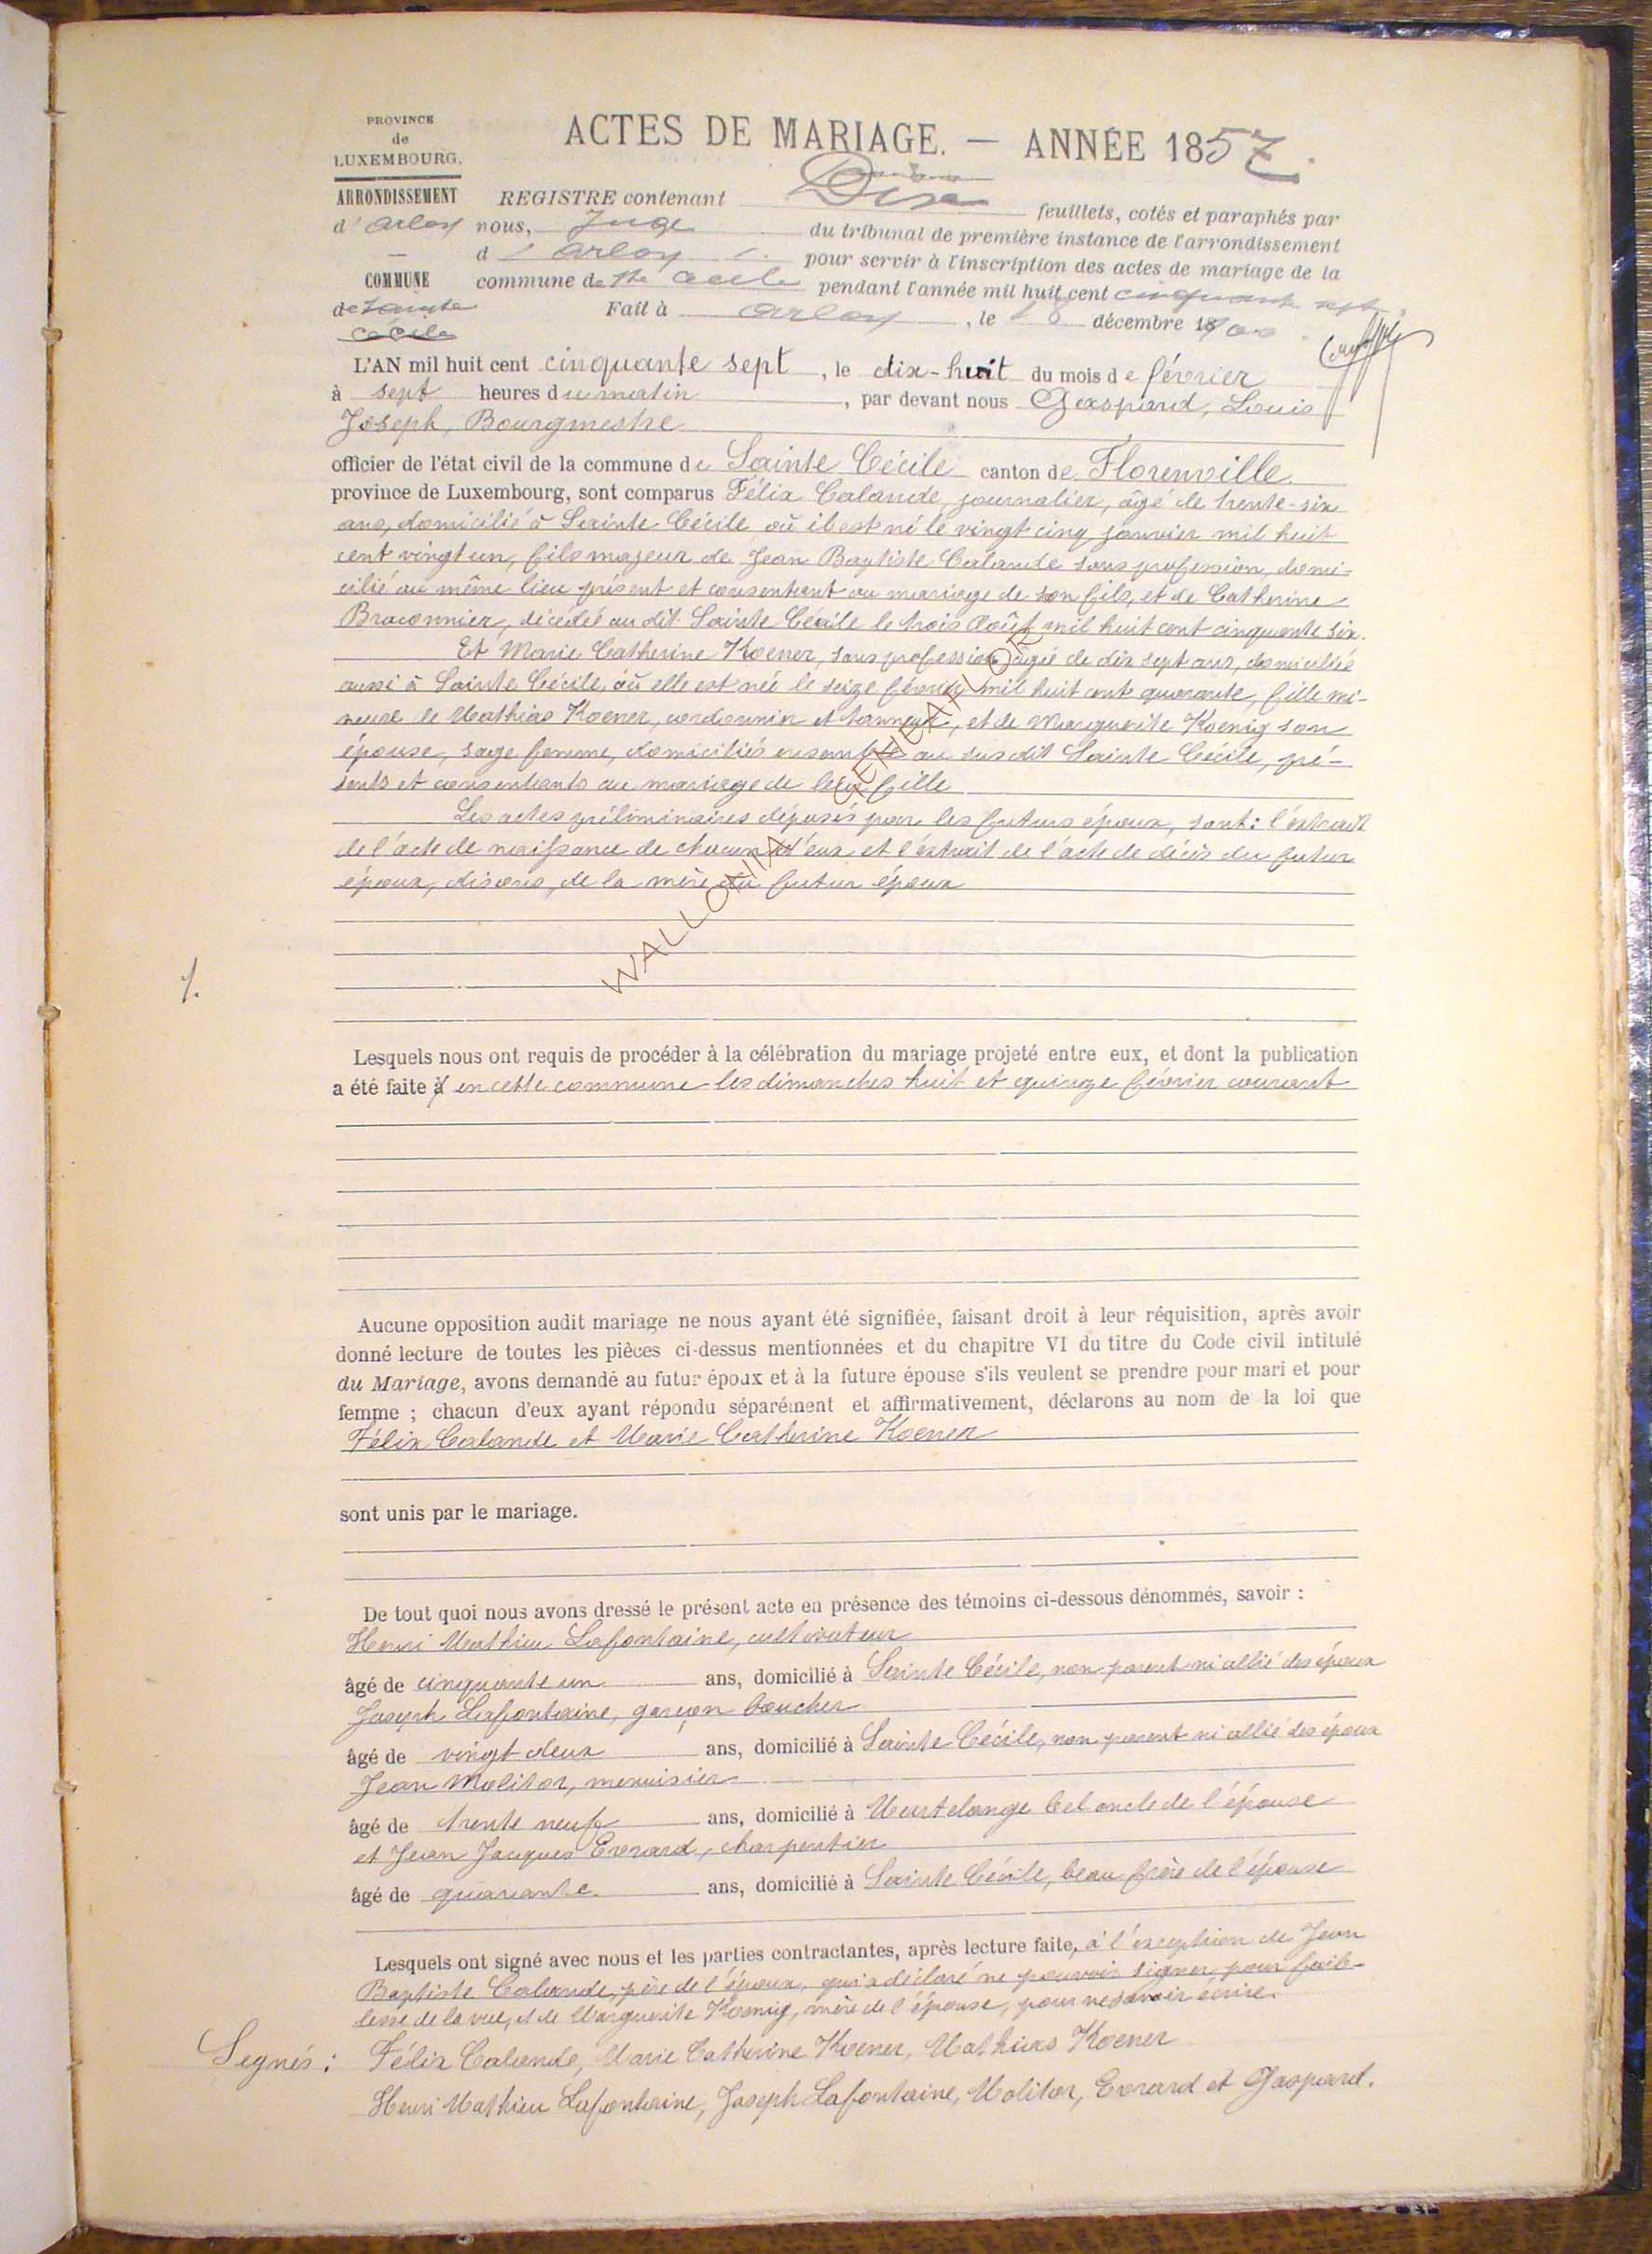 PROVINCE
de
LUXEMBOURG.
ARRONDISSEMENT
d'Arlon
COMMUNE
de Sainte
Cécile
ACTES DE MARIAGE. — ANNÉE 1857.
REGISTRE contenant Dix feuillets, cotés et paraphés par
nous, Juge du tribunal de première instance de l'arrondissement
d'Arlon pour servir à l'inscription des actes de mariage de la
commune de Ste Cécile pendant l'année mil huit cent cinquante sept.
Fait à Arlon, le 18 décembre
L'AN mil huit cent cinquante sept, le dix-huit du mois de février
à sept heures du matin, par devant nous Gaspard, Louis
Joseph, Bourgmestre
officier de l'état civil de la commune de Sainte Cécile canton de Florenville
province de Luxembourg, sont comparus Félix Calande, journalier, âgé de trente-six
ans, domicilié à Sainte Cécile où il est né le vingt cinq janvier mil huit
cent vingt un, fils majeur de Jean Baptiste Calande sans profession, domi-
cilié au même lieu présent et consentant au mariage de son fils, et de Catherine
Braconnier, décédée au dit Sainte Cécile le trois Août mil huit cent cinquante six.
Et Marie Catherine Koener, sans profession âgée de dix sept ans, domiciliée
aussi à Sainte Cécile, où elle est née le seize février mil huit cent quarante, fille mi-
neure de Mathias Koener, cordonnier et tanneur, et de Marguerite Koenig son
épouse, sage femme, domiciliés ensemble au susdit Sainte Cécile, pré-
sents et consentants au mariage de leur fille
Les actes préliminaires déposés par les futurs époux, sont: l'extrait
de l'acte de naissance de chacun d'eux, et l'extrait de l'acte de décès du futur
époux, disons, de la mère du futur époux
WALLONIA GENEAFLOR
1.
Lesquels nous ont requis de procéder à la célébration du mariage projeté entre eux, et dont la publication
a été faite à en cette commune les dimanches huit et quinze février courant
Aucune opposition audit mariage ne nous ayant été signifiée, faisant droit à leur réquisition, après avoir
donné lecture de toutes les pièces ci-dessus mentionnées et du chapitre VI du titre du Code civil intitulé
du Mariage, avons demandé au futur époux et à la future épouse s'ils veulent se prendre pour mari et pour
femme ; chacun d'eux ayant répondu séparément et affirmativement, déclarons au nom de la loi que
Félix Calande et Marie Catherine Koener
sont unis par le mariage.
De tout quoi nous avons dressé le présent acte en présence des témoins ci-dessous dénommés, savoir :
Henri Mathieu Lafontaine, cultivateur
âgé de cinquante un ans, domicilié à Sainte Cécile, non parent ni allié des époux
Joseph Lafontaine, garçon boucher
âgé de vingt deux ans, domicilié à Sainte Cécile, non parent ni allié des époux
Jean Molitor, menuisier
âgé de trente neuf ans, domicilié à Heurtelange bel oncle de l'épouse
et Jean Jacques Evrard, charpentier
âgé de quarante ans, domicilié à Sainte Cécile, beau frère de l'épouse
Lesquels ont signé avec nous et les parties contractantes, après lecture faite, à l'exception de Jean
Baptiste Calande, père de l'époux, qui a déclaré ne pouvoir signer pour faib-
lesse de la vue, et de Marguerite Koenig, mère de l'épouse, pour ne savoir écrire.
Signés : Félix Calande, Marie Catherine Koener, Mathias Koener
Henri Mathieu Lafontaine, Joseph Lafontaine, Molitor, Evrard et Gaspard.